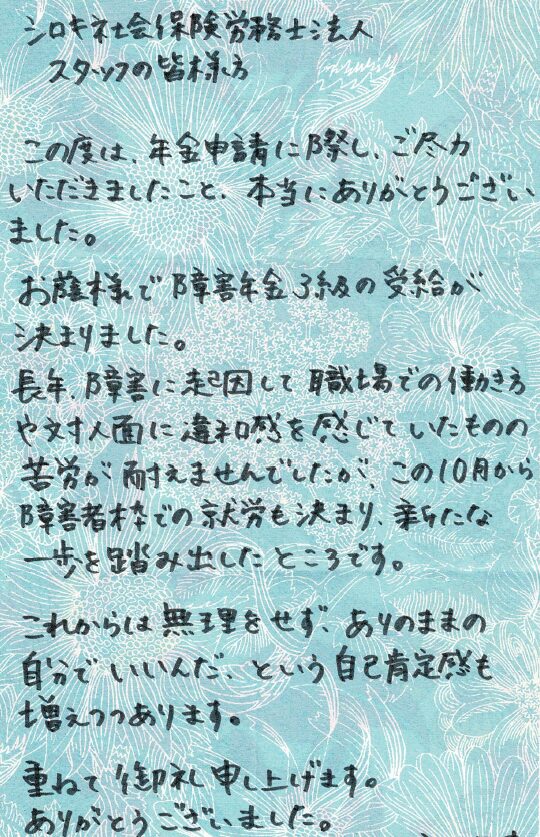 シロキネ社会保険労務士法人
スタッフの皆様方
この度は、年金申請に際し、ご尽力
いただきましたこと、本当にありがとうござい
ました。
お蔭様で障害年金3級の受給が
決まりました。
長年、障害に起因して職場での働き方
や対人面に違和感を感じていたものの
苦労が耐えませんでしたが、この10月から
障害者枠での就労も決まり、新たな
一歩を踏み出したところです。
これからは無理をせず、ありのままの
自分でいいんだ、という自己肯定感も
増えつつあります。
重ねて御礼申し上げます。
ありがとうございました。